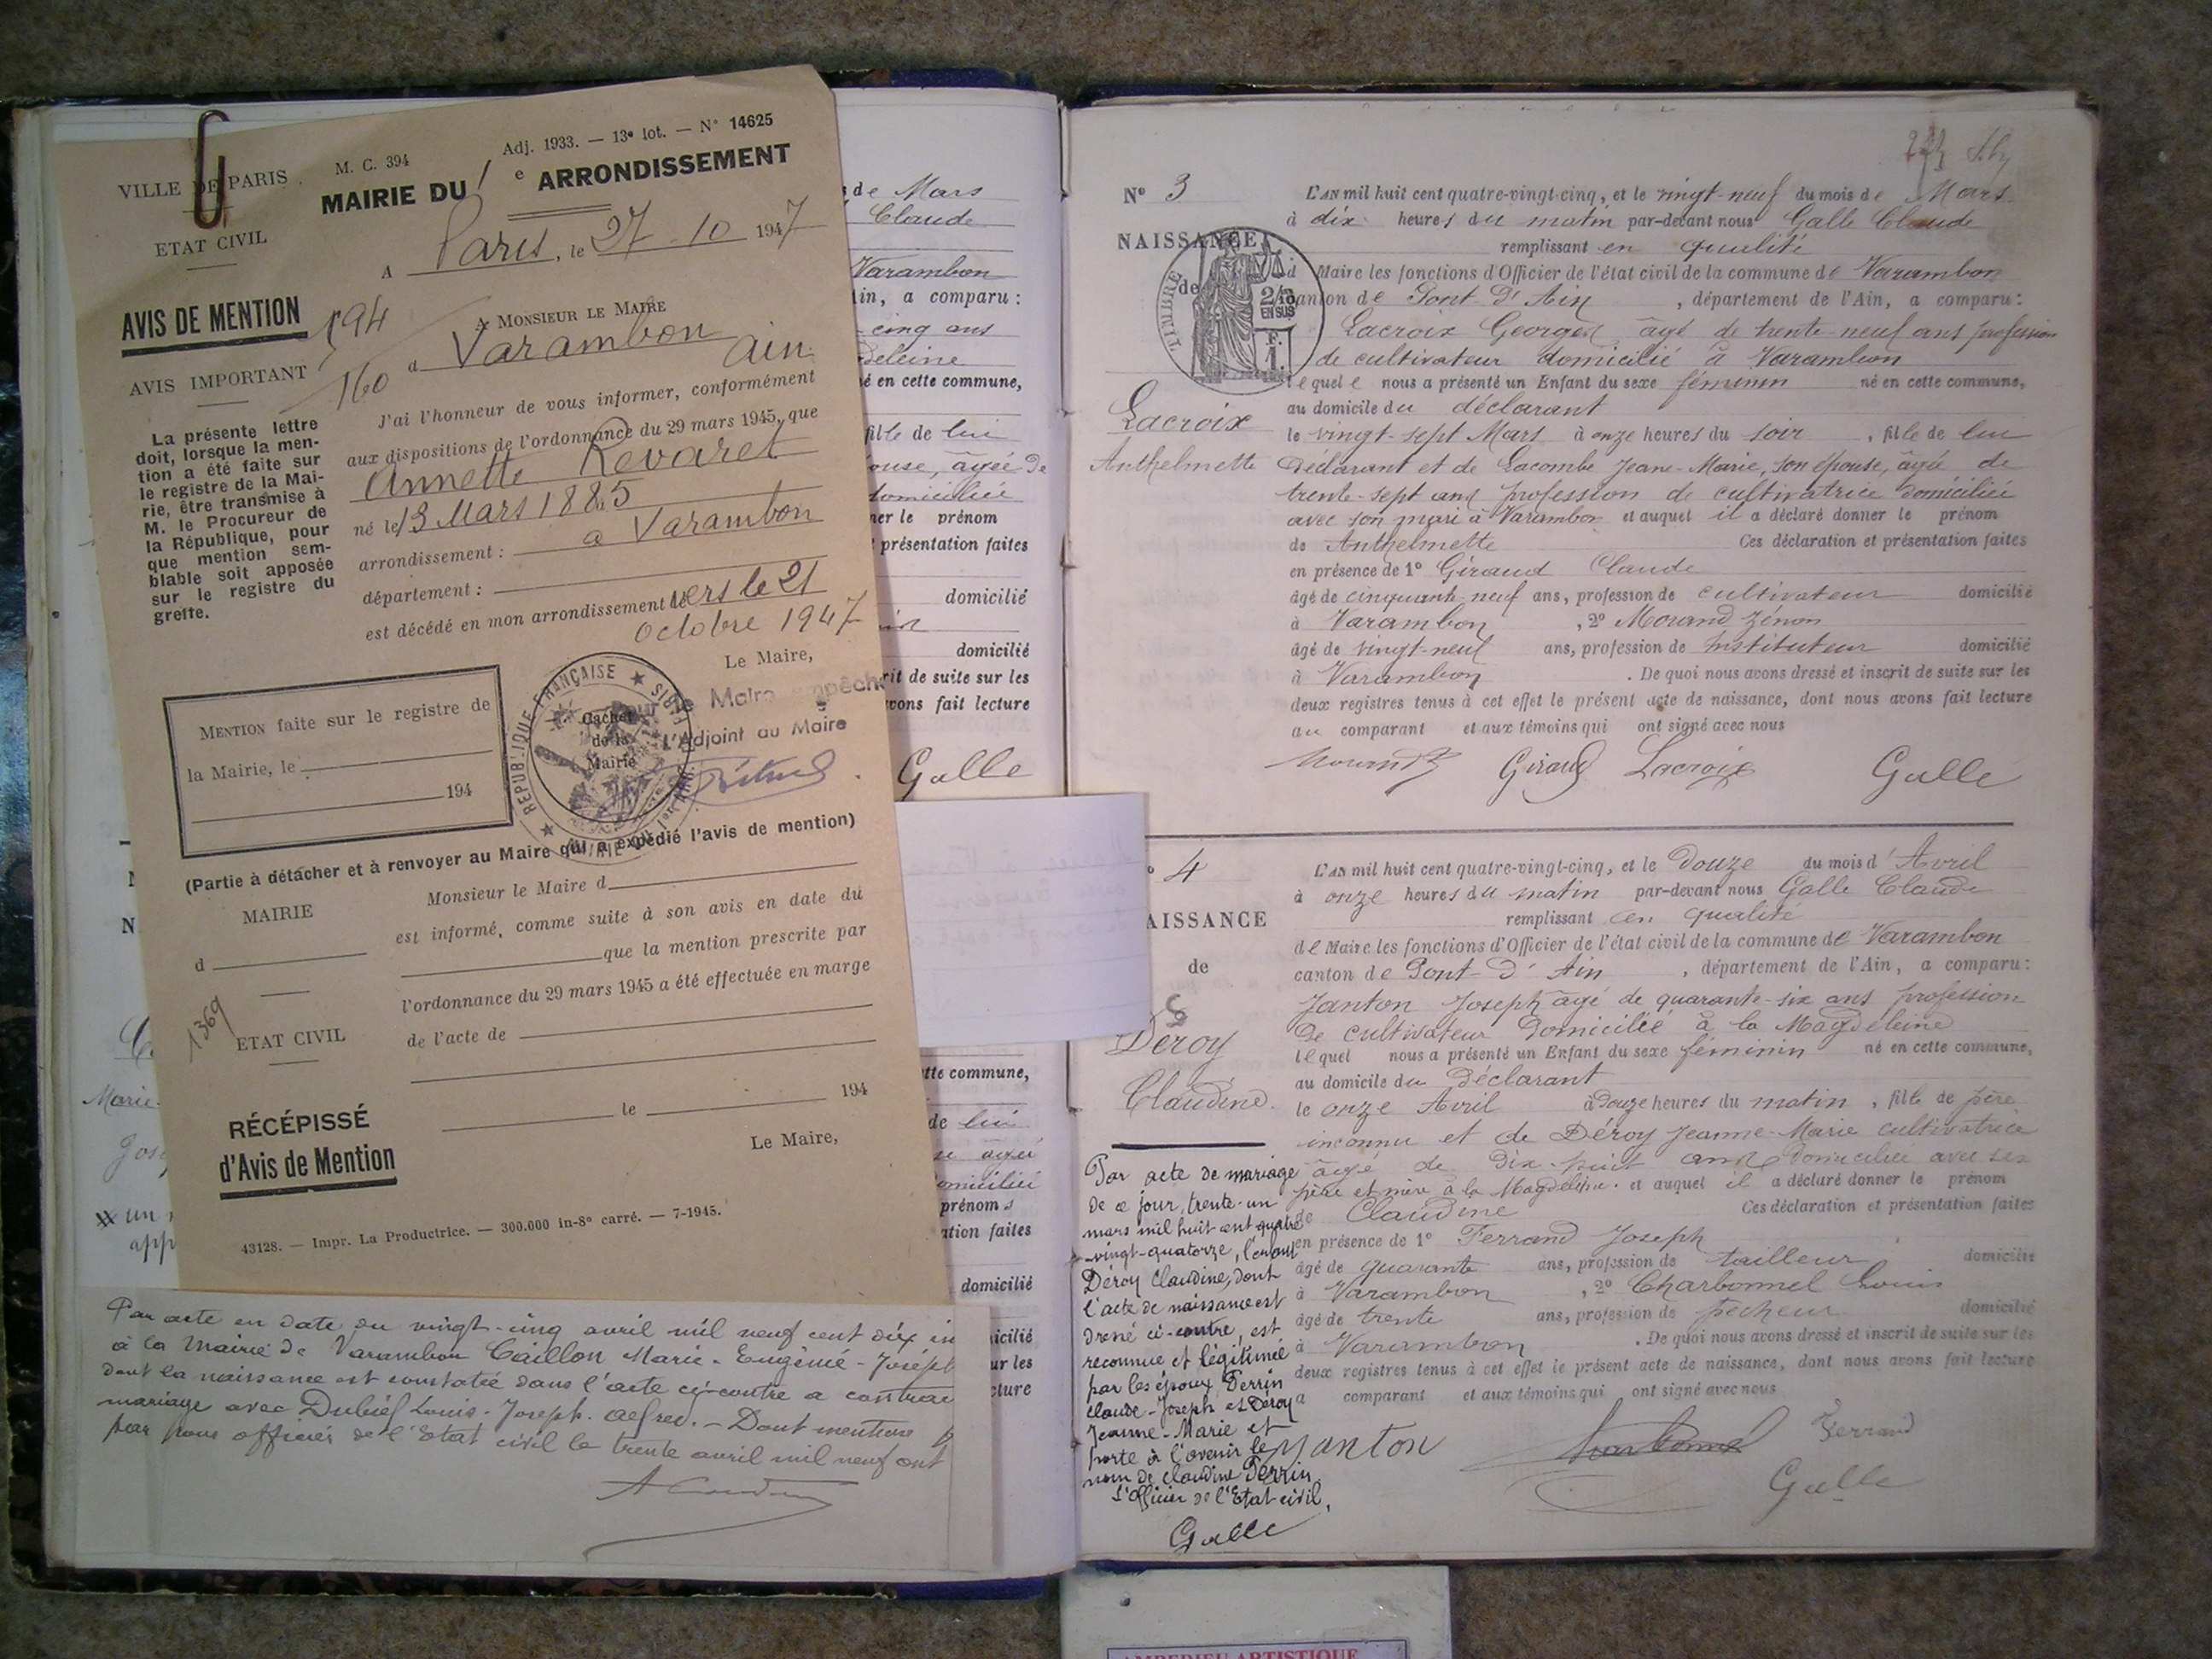 VILLE DE PARIS
M. C. 394
Adj. 1933. — 13e lot. — N° 14625
MAIRIE DU 1 e ARRONDISSEMENT
ETAT CIVIL
A Paris, le 27 - 10 1947
AVIS DE MENTION
194
A MONSIEUR LE MAIRE
à Varambon
ain
AVIS IMPORTANT
160
La présente lettre
doit, lorsque la men-
tion a été faite sur
le registre de la Mai-
rie, être transmise à
M. le Procureur de
la République, pour
que mention sem-
blable soit apposée
sur le registre du
greffe.
J'ai l'honneur de vous informer, conformément
aux dispositions de l'ordonnance du 29 mars 1945, que
Annette Revaret
né le 13 Mars 1885
arrondissement : à Varambon
département :
est décédé en mon arrondissement le vers le 21
octobre 1947
Le Maire,
Le Maire empêché
L'Adjoint au Maire
REPUBLIQUE FRANÇAISE
PARIS
Cachet
de la
Mairie
MENTION faite sur le registre de
la Mairie, le
194
(Partie à détacher et à renvoyer au Maire qui a expédié l'avis de mention)
MAIRIE
d
1369
ETAT CIVIL
Monsieur le Maire d
est informé, comme suite à son avis en date du
que la mention prescrite par
l'ordonnance du 29 mars 1945 a été effectuée en marge
de l'acte de
le 194
Le Maire,
RÉCÉPISSÉ
d'Avis de Mention
43128. — Impr. La Productrice. — 300.000 in-8° carré. — 7-1945.
de Mars
Claude
Varambon
in, a comparu :
cinq ans
deleine
né en cette commune,
fille de lui
ouse, âgée de
domiciliée
ner le prénom
présentation faites
domicilié
domicilié
rit de suite sur les
vons fait lecture
Galle
tte commune,
de lui
prénoms
ation faites
domicilié
icilié
ur les
cture
Marie-
Jos
un
app
Par acte en date du vingt-cinq avril mil neuf cent dix
à la Mairie de Varambon Caillon Marie-Eugénie-Joséph
dont la naissance est constatée dans l'acte ci-contre a contrac
mariage avec Dubief Louis-Joseph-Alfred. — Dont mention
par nous officier de l'Etat civil le trente avril mil neuf cent
N° 3
NAISSANCE
de
TIMBRE
2/10
EN SUS
1 F.
Lacroix
Anthelmette
L'AN mil huit cent quatre-vingt-cinq, et le vingt-neuf du mois de Mars
à dix heures du matin par-devant nous Galle Claude
remplissant en qualité
d Maire les fonctions d'Officier de l'état civil de la commune de Varambon
canton de Pont-d'Ain, département de l'Ain, a comparu :
Lacroix Georges âgé de trente-neuf ans profession
de cultivateur domicilié à Varambon
lequel nous a présenté un Enfant du sexe féminin né en cette commune,
au domicile du déclarant
le vingt-sept Mars à onze heures du soir, fille de lui
déclarant et de Lacombe Jeane-Marie, son épouse, âgée de
trente-sept ans profession de cultivatrice domiciliée
avec son mari à Varambon et auquel il a déclaré donner le prénom
de Anthelmette Ces déclaration et présentation faites
en présence de 1° Giraud Claude
âgé de cinquante-neuf ans, profession de cultivateur domicilié
à Varambon, 2° Morand Zénon
âgé de vingt-neuf ans, profession de Instituteur domicilié
à Varambon. De quoi nous avons dressé et inscrit de suite sur les
deux registres tenus à cet effet le présent acte de naissance, dont nous avons fait lecture
au comparant et aux témoins qui ont signé avec nous
Morand Z Giraud Lacroix Galle
° 4
AISSANCE
de
Déroy
Claudine
L'AN mil huit cent quatre-vingt-cinq, et le douze du mois d'Avril
à onze heures du matin par-devant nous Galle Claude
remplissant en qualité
de Maire les fonctions d'Officier de l'état civil de la commune de Varambon
canton de Pont-d'Ain, département de l'Ain, a comparu :
Janton Joseph âgé de quarante-six ans profession
de cultivateur domicilié à la Magdeleine
lequel nous a présenté un Enfant du sexe féminin né en cette commune,
au domicile du déclarant
le onze Avril à douze heures du matin, fille de père
inconnu et de Déroy Jeanne-Marie cultivatrice
âgé de dix-huit ans domiciliée avec ses
père et mère à la Magdeleine. et auquel il a déclaré donner le prénom
de Claudine Ces déclaration et présentation faites
en présence de 1° Ferrand Joseph
âgé de quarante ans, profession de tailleur domicilié
à Varambon, 2° Charbonnel Louis
âgé de trente ans, profession de pêcheur domicilié
à Varambon. De quoi nous avons dressé et inscrit de suite sur les
deux registres tenus à cet effet le présent acte de naissance, dont nous avons fait lecture
a comparant et aux témoins qui ont signé avec nous
Janton Charbonnel Ferrand
Galle
Par acte de mariage
de ce jour, trente-un
mars mil huit cent quatre
-vingt-quatorze, l'enfant
Déroy Claudine, dont
l'acte de naissance est
dressé ci-contre, est
reconnue et légitimée
par les époux Perrin
Claude-Joseph et Déroy
Jeanne-Marie et
porte à l'avenir le
nom de Claudine Perrin.
L'Officier de l'Etat civil,
Galle
AMPERIEU ARTISTIQUE